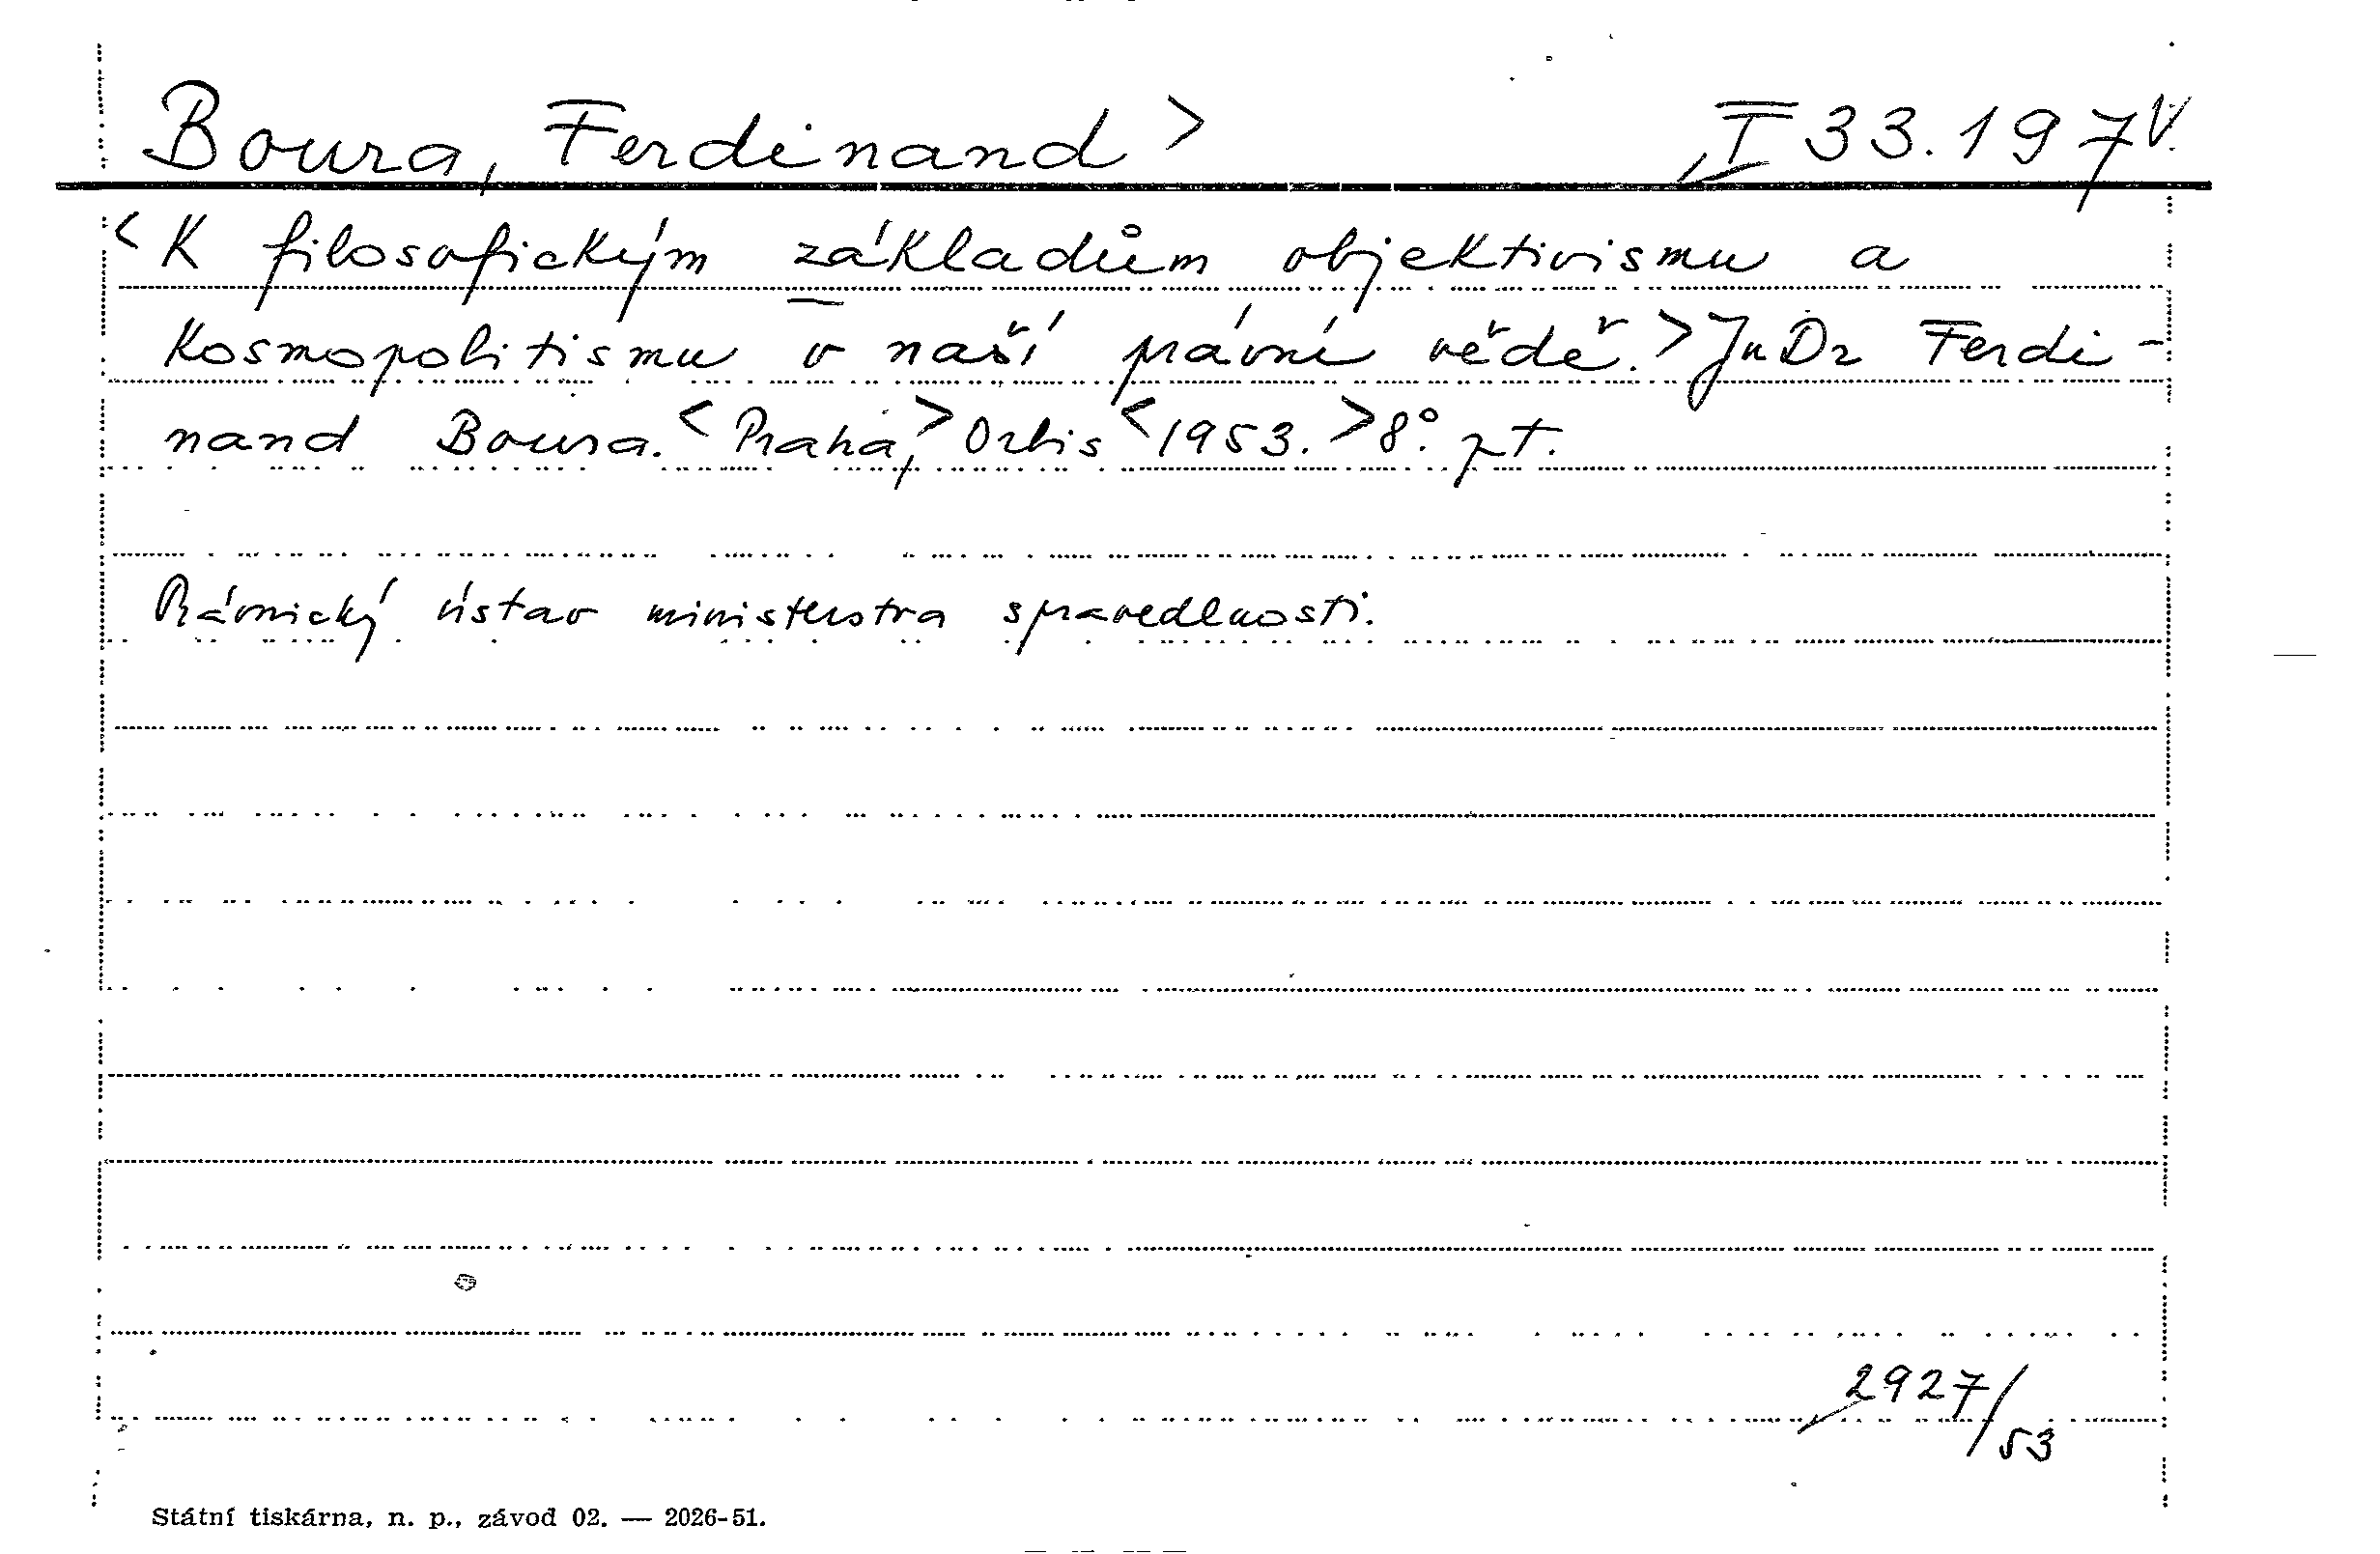 Boura, Ferdinand > I 33.197 V.
<K filosofickým základům objektivismu a
kosmopolitismu v naší právní vědě.> JuDr Ferdi-
nand Boura. <Praha,> Orbis <1953.> 8°. pt.
Právnický ústav ministerstva spravedlnosti.
2927/53
Státní tiskárna, n. p., závod 02. — 2026-51.